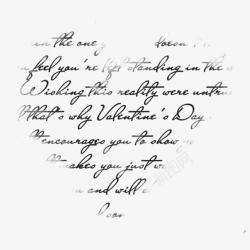 in the one Doesn
feel you're left standing in the
Wishing this reality were untru
that's why Valentine's Day
encourages you to show
makes you just w
and will